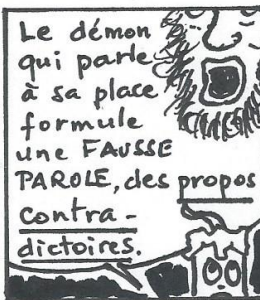 Le démon
qui parle
à sa place
formule
une FAUSSE
PAROLE, des propos
contra-
dictoires.